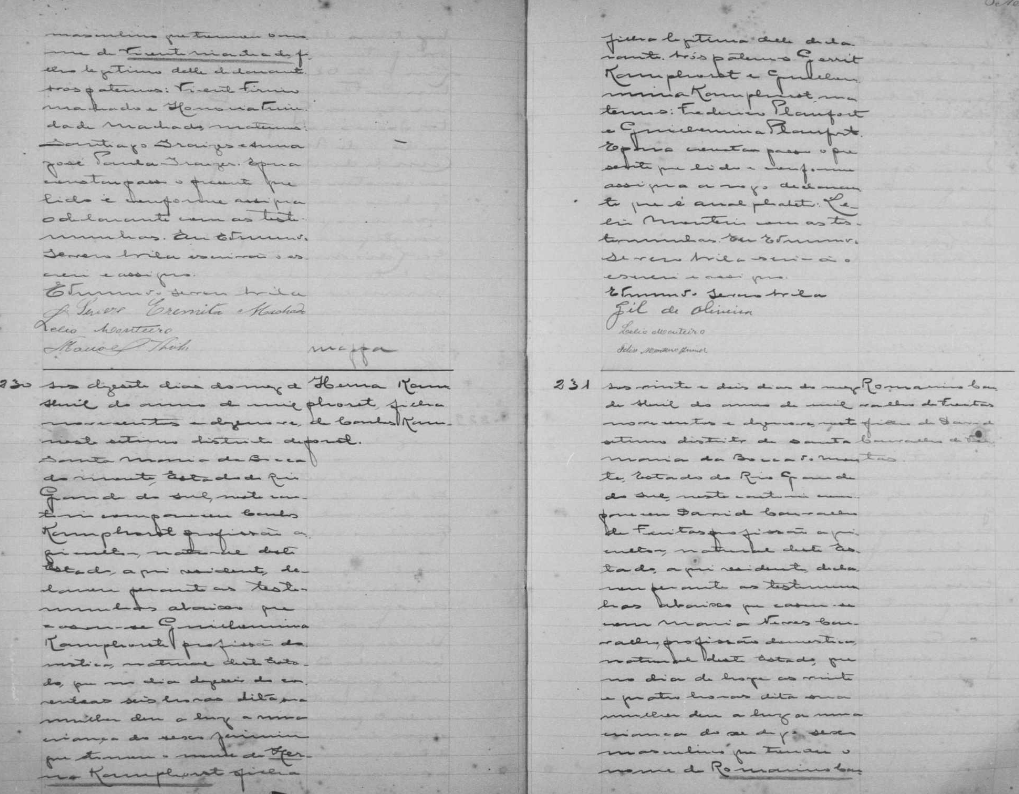 masculino que tomou o no
me de Vicente Machado fi
lho legitimo delle declarante
avós paternos: Vicente Firmi
Machado e Honorina Trin
dade Machado maternos:
Santiago
José Paula Epara
constar passo o presente que
lido e conforme assigna
o declarante com as teste
munhas. Eu Edmundo
Severo escrivão es
crevi e assigno.
Edmundo Severo
Eremita Machado
Lelio Monteiro
230 Aos digesete dias do mez de
Abril do anno de mil
novecentos e digenove
neste setimo districto de
Santa Maria da Bocca
do Monte, Estado do Rio
Grande do Sul, neste car
torio compareceu Carlos
Kamphorst profissão a
gricultor, natural deste
Estado, aqui residente, de
clarou perante as teste-
munhas abaixo que
casou-se Guilhermina
Kamphorst profissão do
mestica, natural deste Esta
do, que no dia do co
rrente as seis horas dita sua
mulher deu a luz a uma
criança do sexo feminino
que tomou o nome de Her-
na Kamphorst filha
Herna Kam
phorst, filha
de Carlos Kam-
phorst.
filha legitima delle decla
rante. Avós paternos Gerrit
Kamphorst e Guilher
mina Kamphorst, ma
ternos: Frederico Planfort
e Guilhermina Planfort.
Epara constar passo o pre
sente que lido e conforme
assigna a rogo declaran
te que é analphabeto. Le
lio Monteiro com as tes-
temunhas. Eu Edmundo
Severo escrivão o
escrevi e assigno.
Edmundo Severo
Gil de Oliveira
Lelio Monteiro
231 Aos vinte e dois dias do mez
de Abril do anno de mil
novecentos e digenove neste
setimo districto de Santa
Maria da Bocca do Mon
te, Estado do Rio Grande
do Sul, neste cartorio com
pareceu David Carvalho
de Freitas profissão agri
cultor, natural deste Es-
tado, aqui residente, decla
rou perante as testemun
has abaixo que casou-se
com Maria Neves Car-
valho, profissão domestica
natural deste Estado, que
no dia de hoje as vinte
e quatro horas dita sua
mulher deu a luz a uma
criança do sexo
masculino que tomou o
nome de Romanino Car
Romanino Car
valho de Freitas
filho de David
Carvalho de Frei
tas